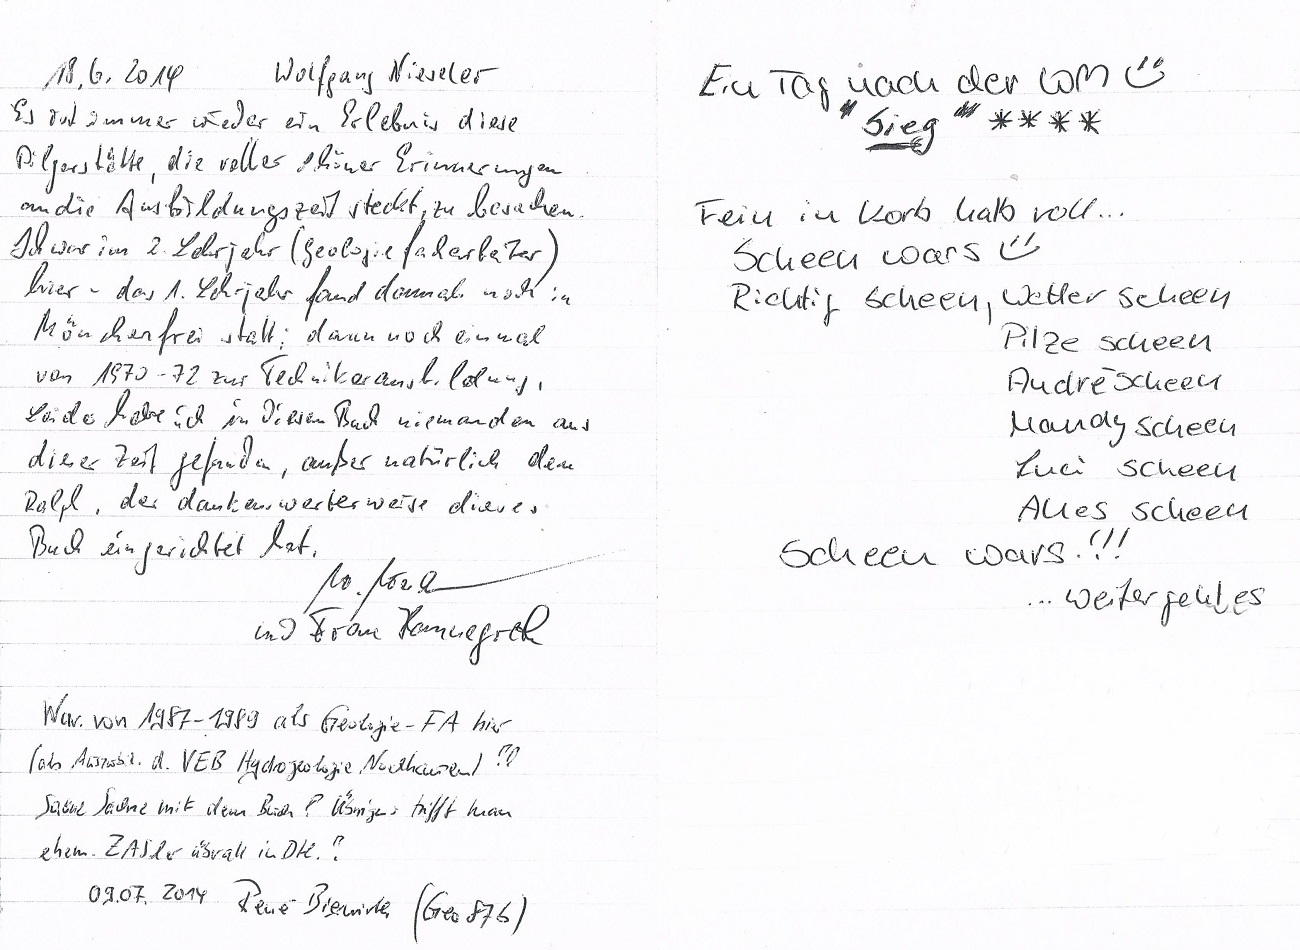 18.6.2014 Wolfgang Nieseler
Es ist immer wieder ein Erlebnis diese
Pilgerstätte, die voller schöner Erinnerungen
an die Ausbildungszeit steckt, zu besuchen.
Ich war im 2. Lehrjahr (Geologiefacharbeiter)
hier - das 1. Lehrjahr fand damals noch in
Mönchenfrei statt; dann noch einmal
von 1970-72 zur Technikerausbildung.
Leider habe ich in diesem Buch niemanden aus
dieser Zeit gefunden, außer natürlich dem
Ralph, der dankenswerterweise dieses
Buch eingerichtet hat.
und Frau
War von 1987-1989 als Geologie-FA hier
(als Auszubil. d. VEB Hydrogeologie Nordhausen)!!
Schöne Sache mit dem Buch! Übrigens trifft man
ehem. ZASler überall in Dtl.!
09.07.2014 René (Geo 87b)
Ein Tag nach der WM
"Sieg" ****
Fein in Korb halb voll...
Scheen wars
Richtig scheen, Wetter scheen
Pilze scheen
André scheen
Mandy scheen
Luci scheen
Alles scheen
Scheen wars!!!
...weiter geht es